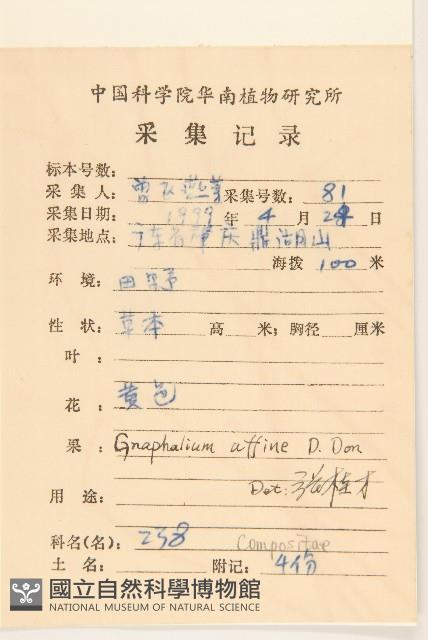 中国科学院华南植物研究所
采集记录
标本号数:
采集人: 曾 燕 采集号数: 81
采集日期: 1999 年 4 月 29 日
采集地点: 广东省肇庆鼎湖山
海拨 100 米
环 境: 田野
性 状: 草本 高 米; 胸径 厘米
叶 :
花 : 黄色
果 : Gnaphalium affine D. Don
用 途: Det: 张桂才
科名(名): 238 Compositae
土 名: 附记: 4份
國立自然科學博物館
NATIONAL MUSEUM OF NATURAL SCIENCE